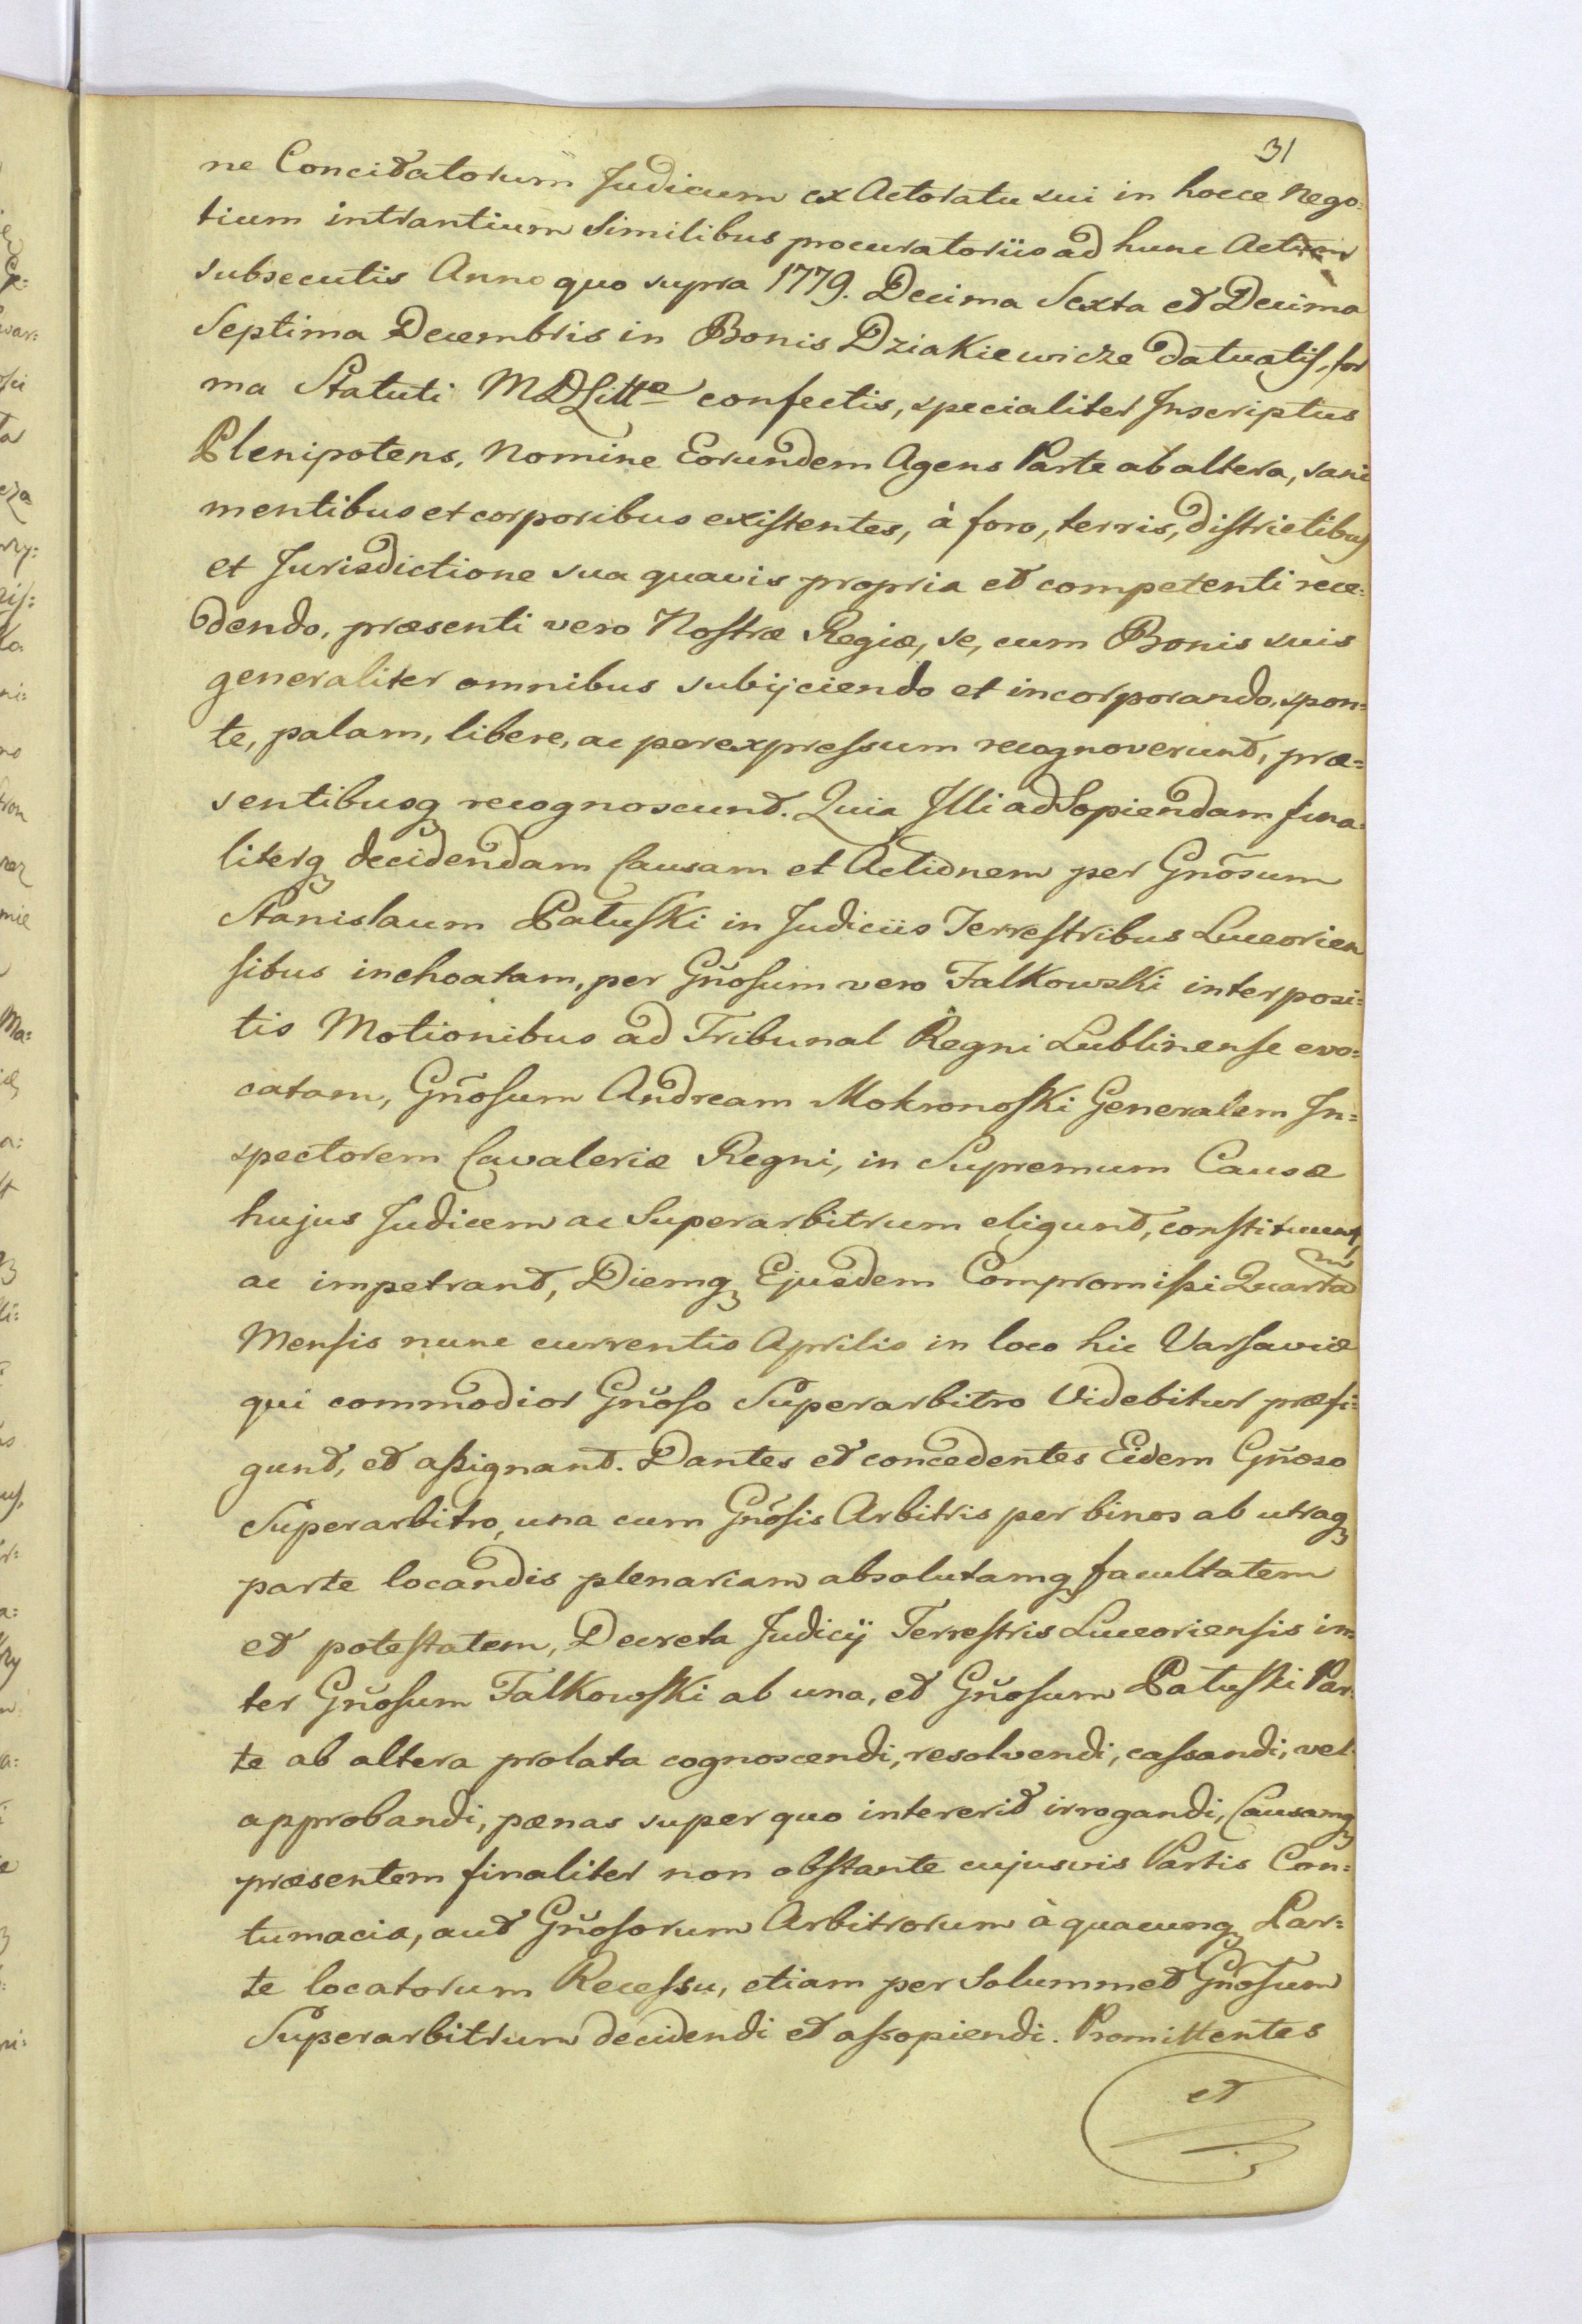 31
ne Concitatorum Judicum ex Actoratu sui in hocce Nego:
tium intrantium Similibus procuratoriis ad hunc Actum
subsecutis Anno quo supra 1779. Decima Sexta et Decima
Septima Decembris in Bonis Dziakiewicze datuatis, for
ma Statuti M D Littæ confectis, specialiter Inscriptus
Plenipotens, Nomine Eorundem Agens Parte ab altera, sani
mentibus et corporibus existentes, à foro, terris, districtibus
et Jurisdictione sua quavis propria et competenti rece:
dendo, præsenti vero Nostræ Regiæ, se, cum Bonis suis
generaliter omnibus subijciendo et incorporando, spon:
te, palam, libere, ac per expressum recognoverunt, præ=
sentibusq recognoscunt. Quia Illi ad Sopiendam fina:
literq decidendam Causam et Actionem per Gñosum
Stanislaum Patuski in Judiciis Terrestribus Luceorien
sibus inchoatam, per Gñosum vero Falkowski interposi:
tis Motionibus ad Tribunal Regni Lublinense evo:
catam, Gñosum Andream Mokronoski Generalem In=
spectorem Cavaleriæ Regni, in Supremum Causæ
hujus Judicem ac Superarbitrum eligunt, constituunt,
ac impetrant, Diemq Ejusdem Compromissi Quartam
Mensis nunc currentis Aprilis in loco hic Varsaviæ
qui commodior Gñoso Superarbitro Videbitur præfi:
gunt, et assignant. Dantes et concedentes Eidem Gñoso
Superarbitro, una cum Gñosis Arbitris per binos ab utraq
parte locandis plenariam absolutamq facultatem
et potestatem, Decreta Judicij Terrestris Luceoriensis in
ter Gñosum Falkowski ab una, et Gñosum Patuski Par:
te ab altera prolata cognoscendi, resolvendi, cassandi, vel
approbandi, pænas super quo intererit irrogandi, Causamq
præsentem finaliter non obstante cujusvis Partis Con:
tumacia, aut Gñosorum Arbitrorum à quacunq Par:
te locatorum Recessu, etiam per Solummet Gñosum
Superarbitrum decidendi et assopiendi. Promittentes
et